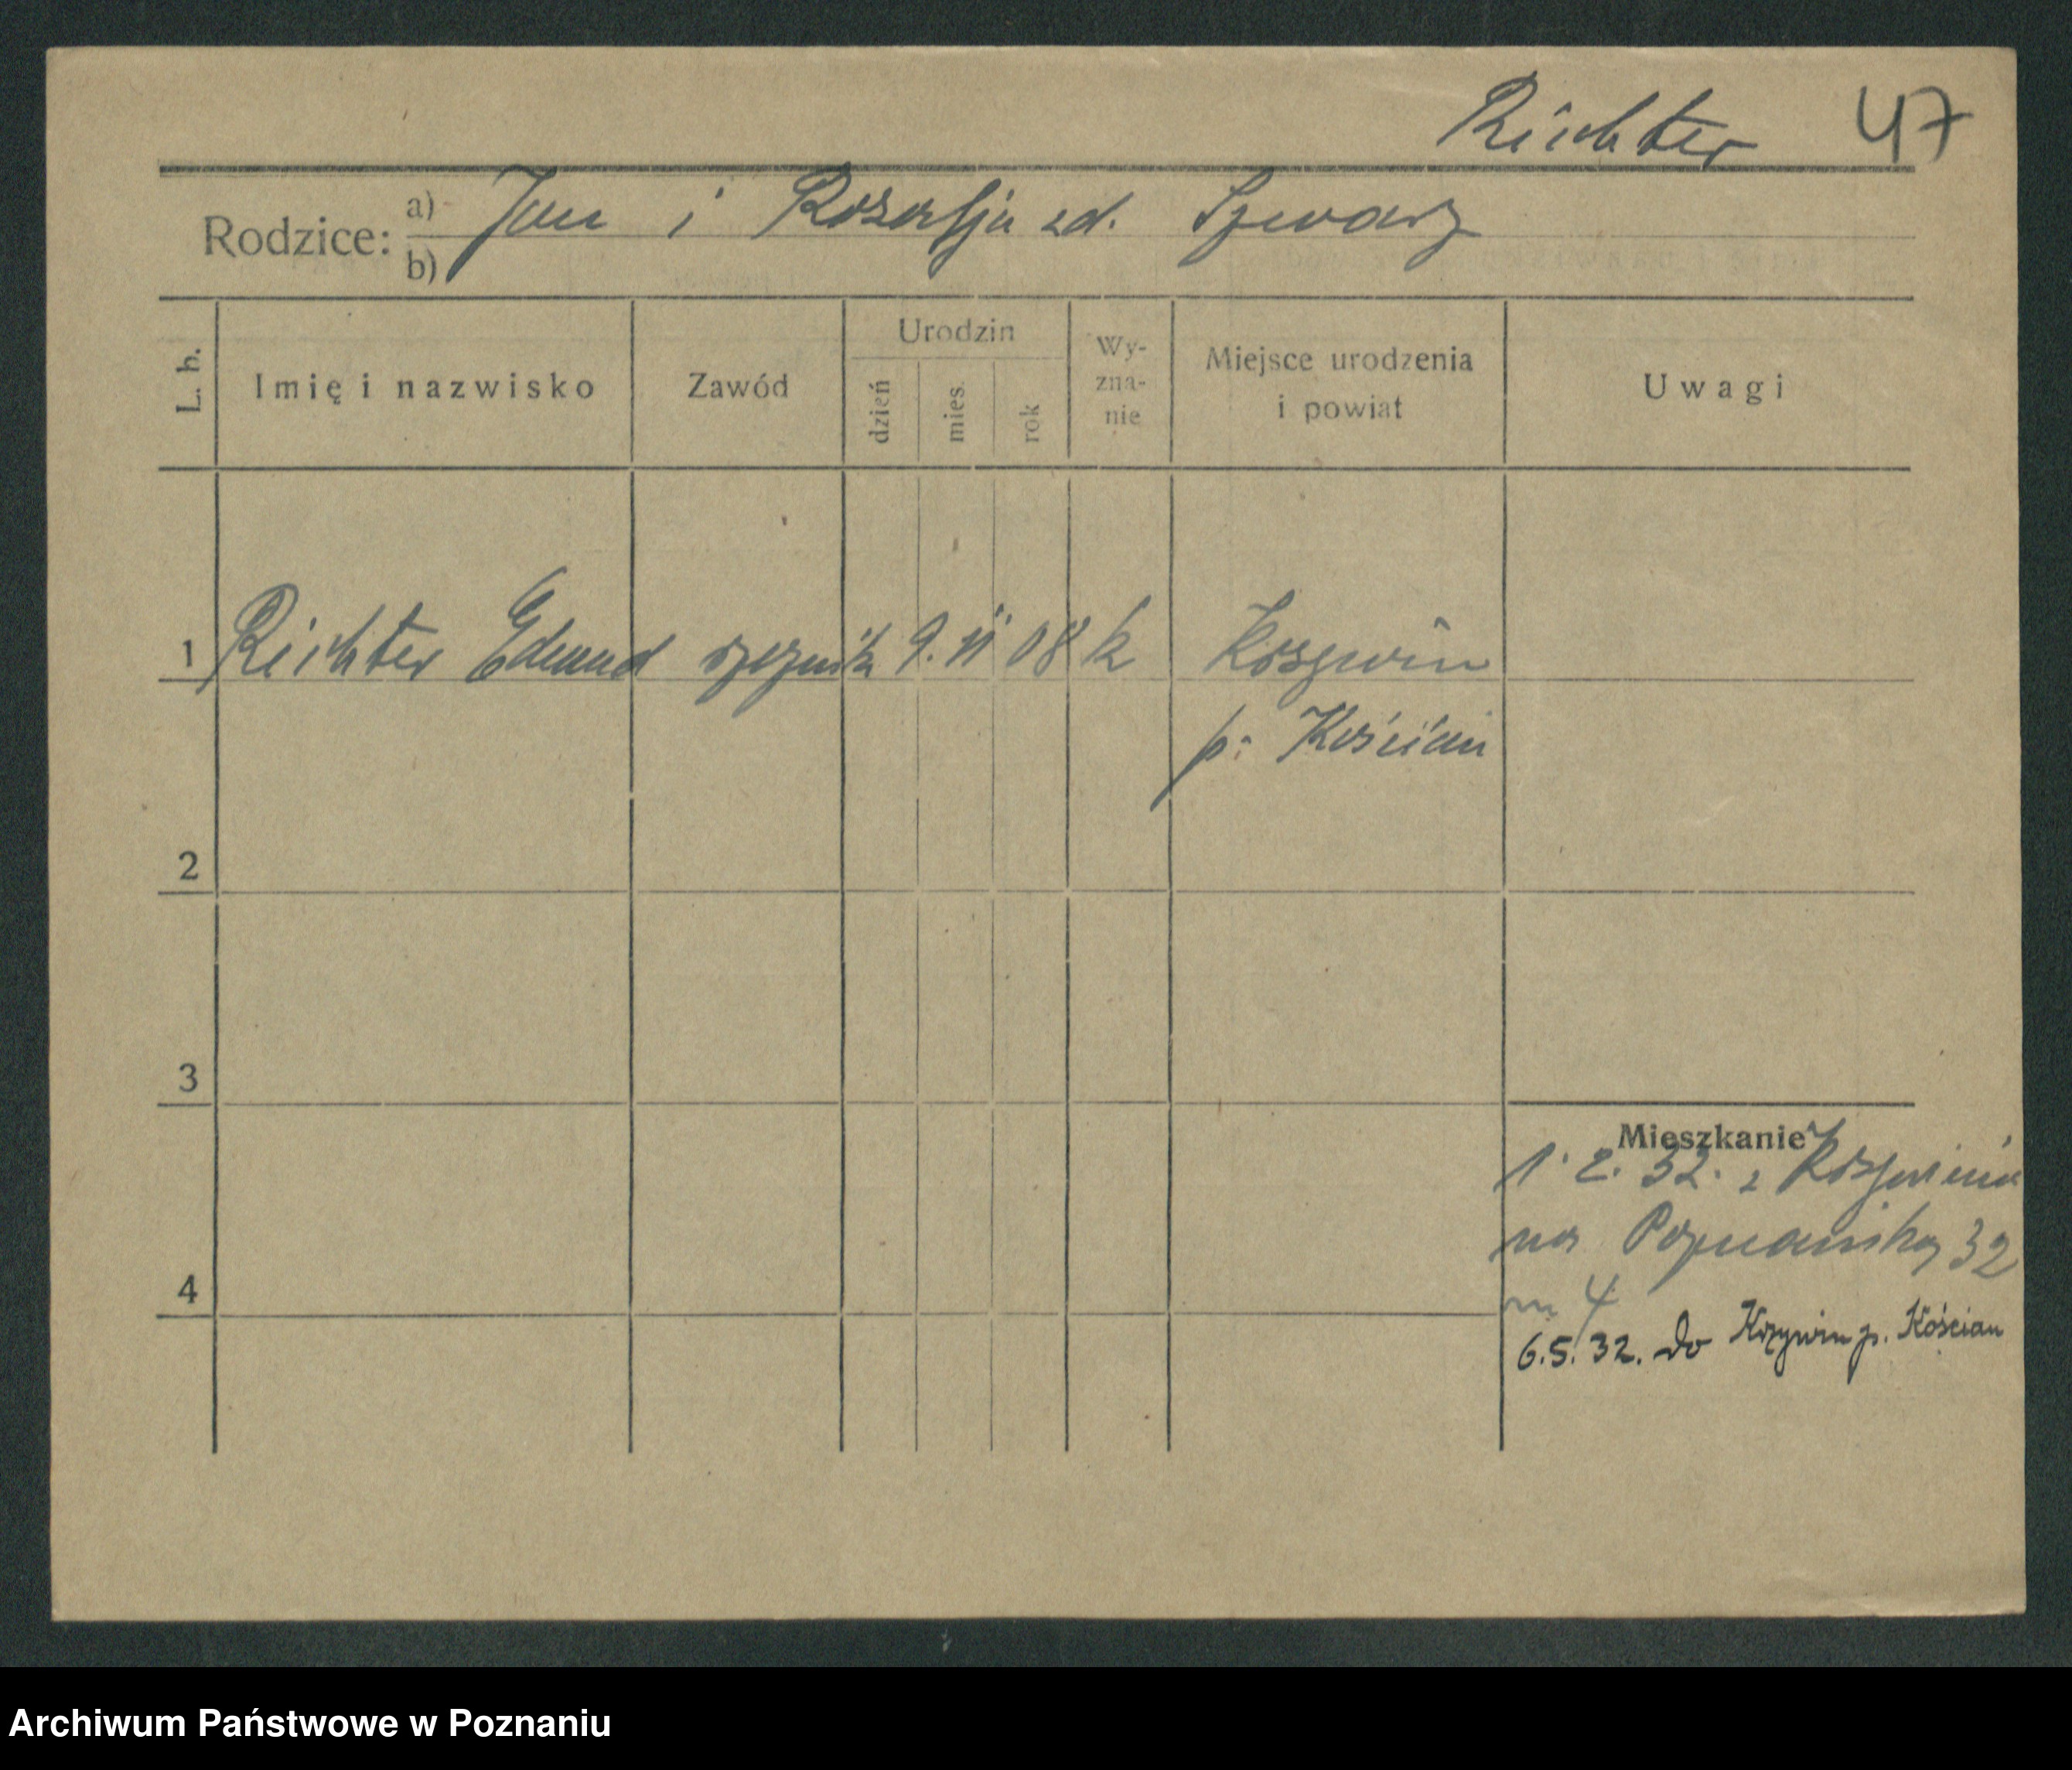 Richter 47
Rodzice: a) Jan i Rozalja zd. Szwarz
b)
L. b. Imię i nazwisko Zawód Urodzin dzień mies. rok Wy-zna-nie Miejsce urodzenia i powiat Uwagi
1 Richter Edmund rzeznik 9. 08 k Krzywin
p. Kościan
2
3
Mieszkanie
1. 2. 32. z Krzywinia
na Poznańską 32
4
m 4
6.5.32. do Krzywin p. Kościan
Archiwum Państwowe w Poznaniu